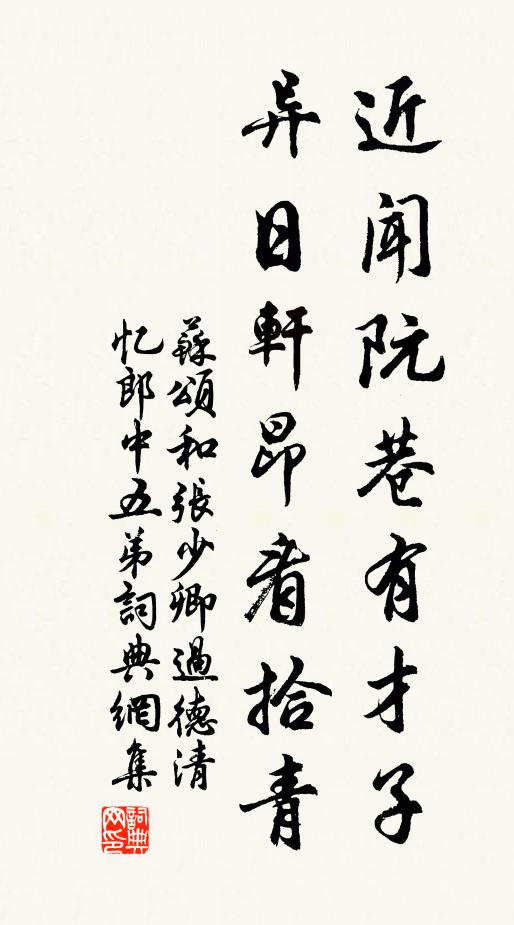 近闻阮巷有才子
异日軒昂看拾青
蘇頌和張少卿過德清
忆郎中五弟詞典網集
詞典网印